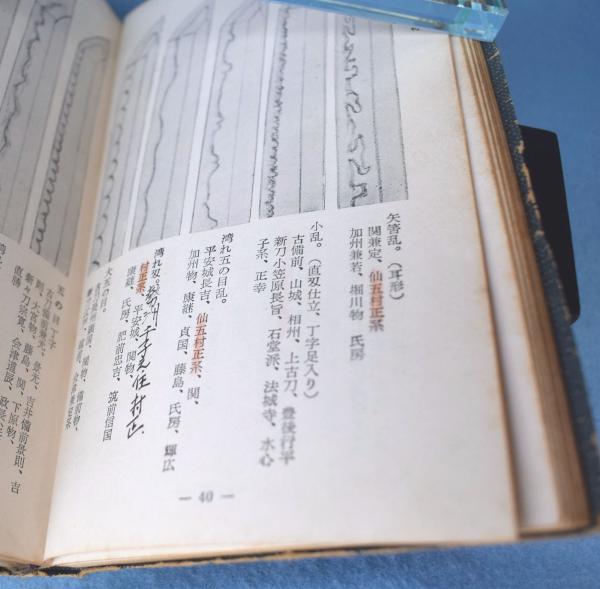 矢筈乱。(耳形)
関兼定、仙五村正系
加州兼若、堀川物 氏房
小乱。(直刄仕立、丁字足入り)
古備前、山城、相州、上古刀、豊後行平
新刀小笠原長旨、石堂派、法城寺、水心
子系、正幸
湾れ五の目乱。
平安城長吉、仙五村正系、関、
加州物、康継、貞国、藤島、氏房、輝広
湾れ刄。
村正系、平安城、関物、
康継、氏房、肥前忠吉、筑前信国
関物、備前物、
五の目丁子
古刀備前景光、吉井備前景則、吉
則、大宮物、藤島、関、下原物、
直勝
— 40 —